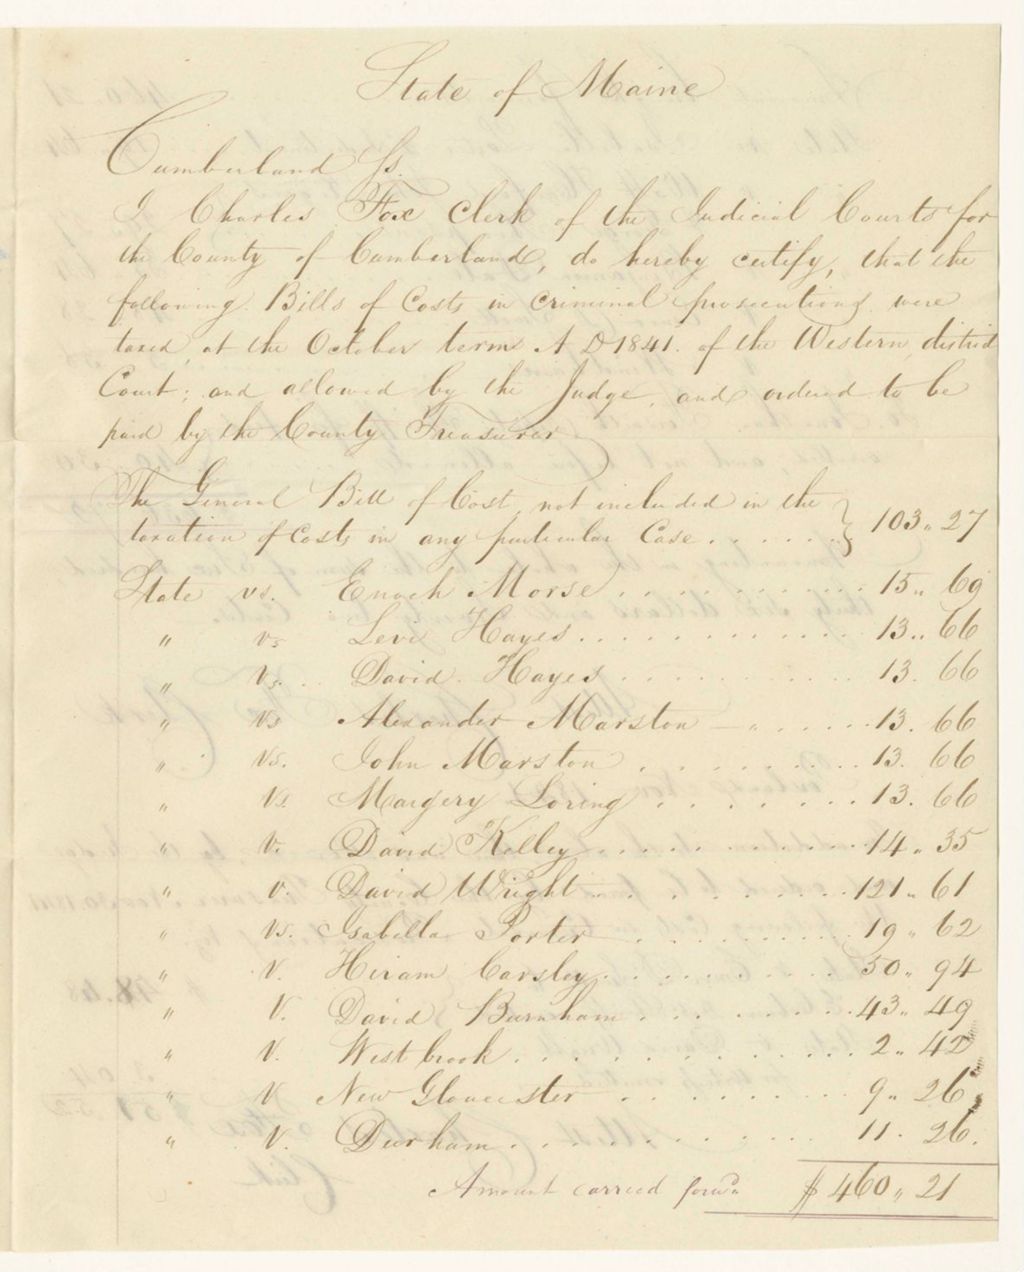 State of Maine
Cumberland Ss.
I Charles Fox Clerk of the Judicial Courts for
the County of Cumberland, do hereby certify, that the
following Bills of Costs in criminal prosecutions were
taxed, at the October term A D 1841. of the Western district
Court; and allowed by the Judge, and ordered to be
paid by the County Treasurer
The General Bill of Cost, not included in the
taxation of Costs in any particular Case . . . . . . } 103 " 27
State vs. Enoch Morse . . . . . . . . . . . 15 " 69
" vs Levi Hayes . . . . . . . . . . . . 13 .. 66
" Vs. . . David Hayes . . . . . . . . . . . 13. 66
" Vs Alexander Marston — " . . . . . . 13. 66
" Vs. John Marston . . . . . . . . . . 13. 66
" Vs Margery Loring . . . . . . . . . 13. 66
" V. David Kelley . . . . . . . . . . . 14 " 35
" v. David Wright . . . . . . . . . . . 121 " 61
" Vs. Isabella Porter . . . . . . . . . . 19 " 62
" V. Hiram Carsley . . . . . . . . . . 50 " 94
" V. David Burnham . . . . . . . . . 43 " 49
" V. Westbrook . . . . . . . . . . . . . 2 " 42
" V New Gloucester . . . . . . . . . . 9 " 26
" V. Durham . . . . . . . . . . . . . 11. 26.
Amount carried forwd. $ 460 " 21